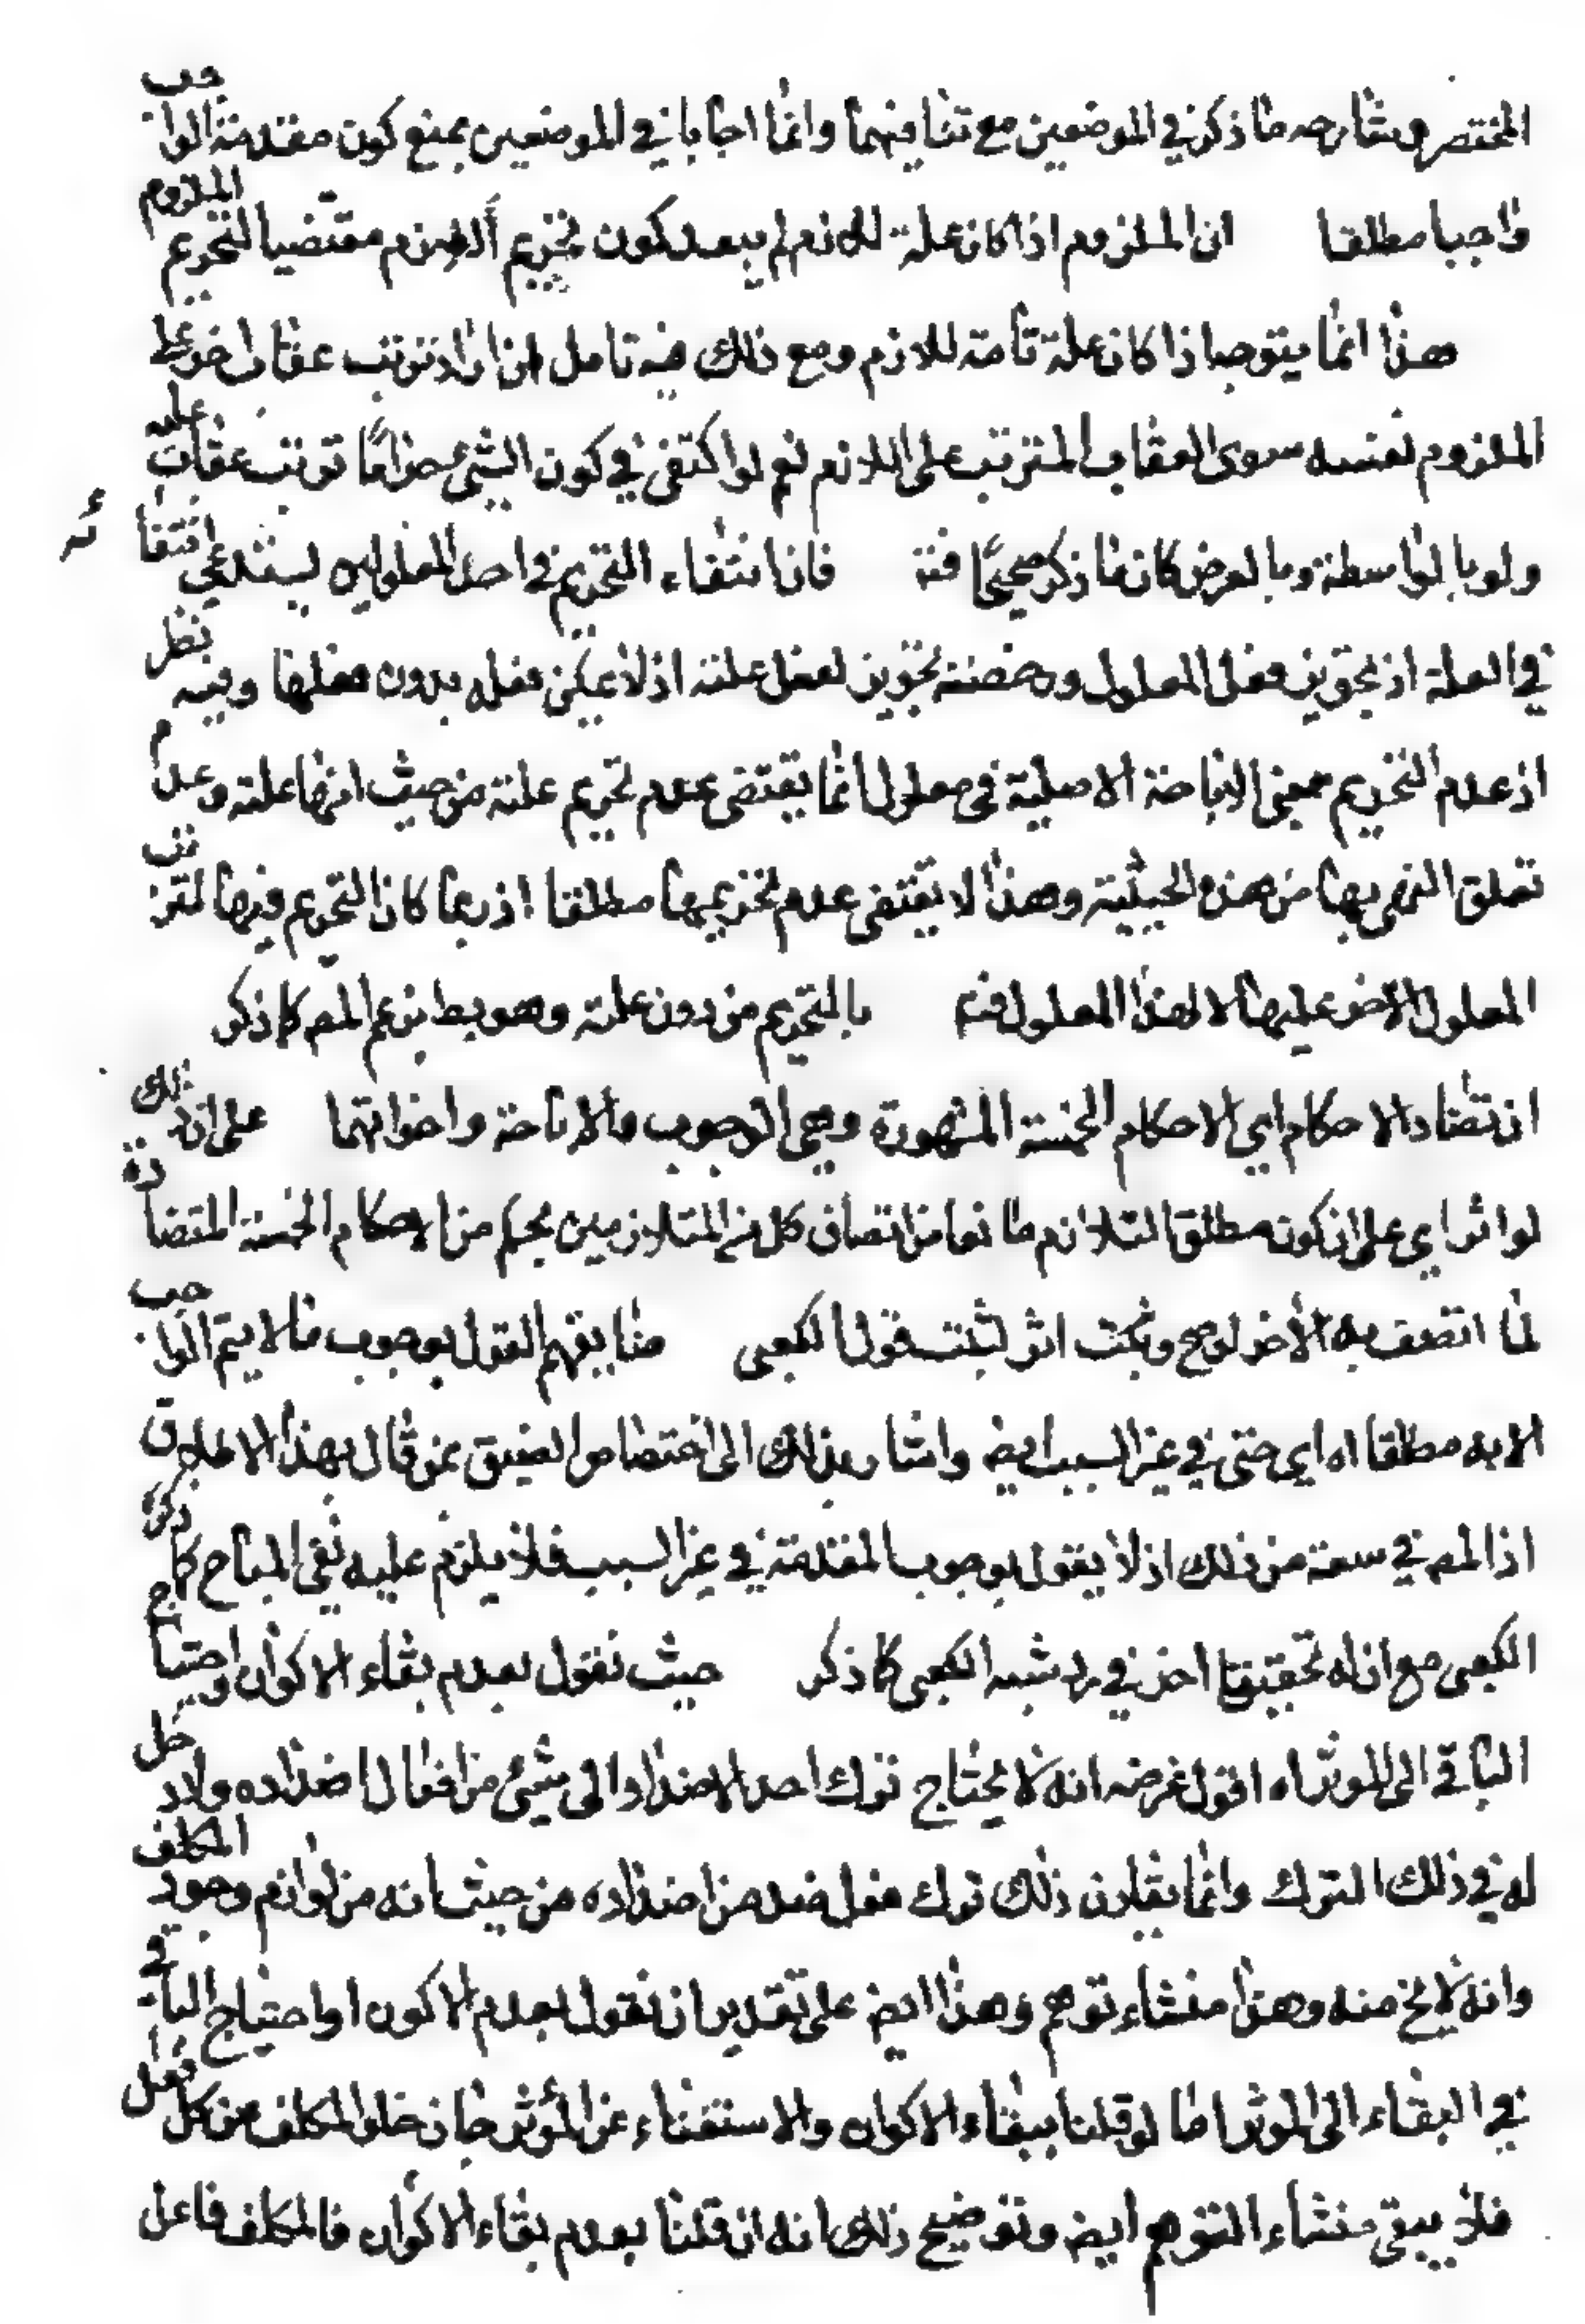 المختصر وشارحه ما ذكر في الموضعين مع تنافيهما وانما اجابا في الموضعين بمنع كون مقدمة الواجب
واجبا مطلقا ان الملزوم اذا كان علة للازم لم يبعد كون تحريم اللازم مقتضيا لتحريم الملزوم
هذا انما يتوجه اذا كان علة تامة للازم ومع ذلك فيه تامل ان اراد ترتب عقاب اخر على
الملزوم نفسه سوى العقاب المترتب على اللازم نعم لو اكتفى في كون الشئ حراما ترتب عقاب عليه
ولو بالواسطة وبالعرض كان ما ذكر صحيحًا فتة فان انتفاء التحريم في احد المعلولين يستدعي انتفائه
في العلة اذ تجويز فعل المعلول ورخصته تجويز لفعل علته اذ لا يمكن فعله بدون فعلها وفيه نظر
اذ عدم التحريم بمعنى الاباحة الاصلية في معلول انما يقتضى عدم تحريم علته من حيث انها علته وعدم
تعلق النهى بها من هذه الحيثية وهذا لا يقتضى عدم تحريمها مطلقا اذ ربما كان التحريم فيها لترتب
المعلول الاخر عليها لا لهذا المعلول فتة بالتحريم من دون علته وهو بط بزعم المص كما ذكر
ان تضاد الاحكام اي الاحكام الخمسة المشهورة وهي الوجوب والاباحة واخواتهما على ان ذلك
لو اثر اي على ان كون مطلق التلازم مانعا من اتصاف كل من المتلازمين بحكم من الاحكام الخمسة المتضادة
لما اتصف به الاخر لو صح وثبت اثر لثبت قول الكعبى هنا يفهم القول بوجوب ما لا يتم الواجب
الا به مطلقا اه اي حتى في غير السبب ايضا واشار بذلك الى اختصاص الضيق بمن قال بهذا الاطلاق
اذ المص في سعة من ذلك اذ لا يقول بوجوب المقدمة في غير السبب فلا يلزم عليه نفى المباح كما ذكره
الكعبى مع ان له تحقيقا اخر في رد شبهه الكعبى كما ذكر حيث نقول بعدم بقاء الاكوان واحتياج
الباقي الى الموثر اه اقول غرضه انه لا يحتاج ترك احد الاضداد الى شئ من افعال اضداده ولا دخل
له في ذلك الترك وانما يقارن ذلك ترك فعل ضد من اضداده من حيث انه من لوازم وجود المكلف
وانه لا يخ منه وهذا منشاء توهم وهذا ايض على تقدير ان نقول بعدم الاكون او احتياج الباقي
في البقاء الى الموثر اما لو قلنا ببقاء الاكوان والاستغناء عن المؤثر جاز خلو المكلف من كل فعل
فلا يبقى منشاء التوهم ايض وتوضيح ذلك انه ان قلنا بعدم بقاء الاكوان فالمكلف فاعل